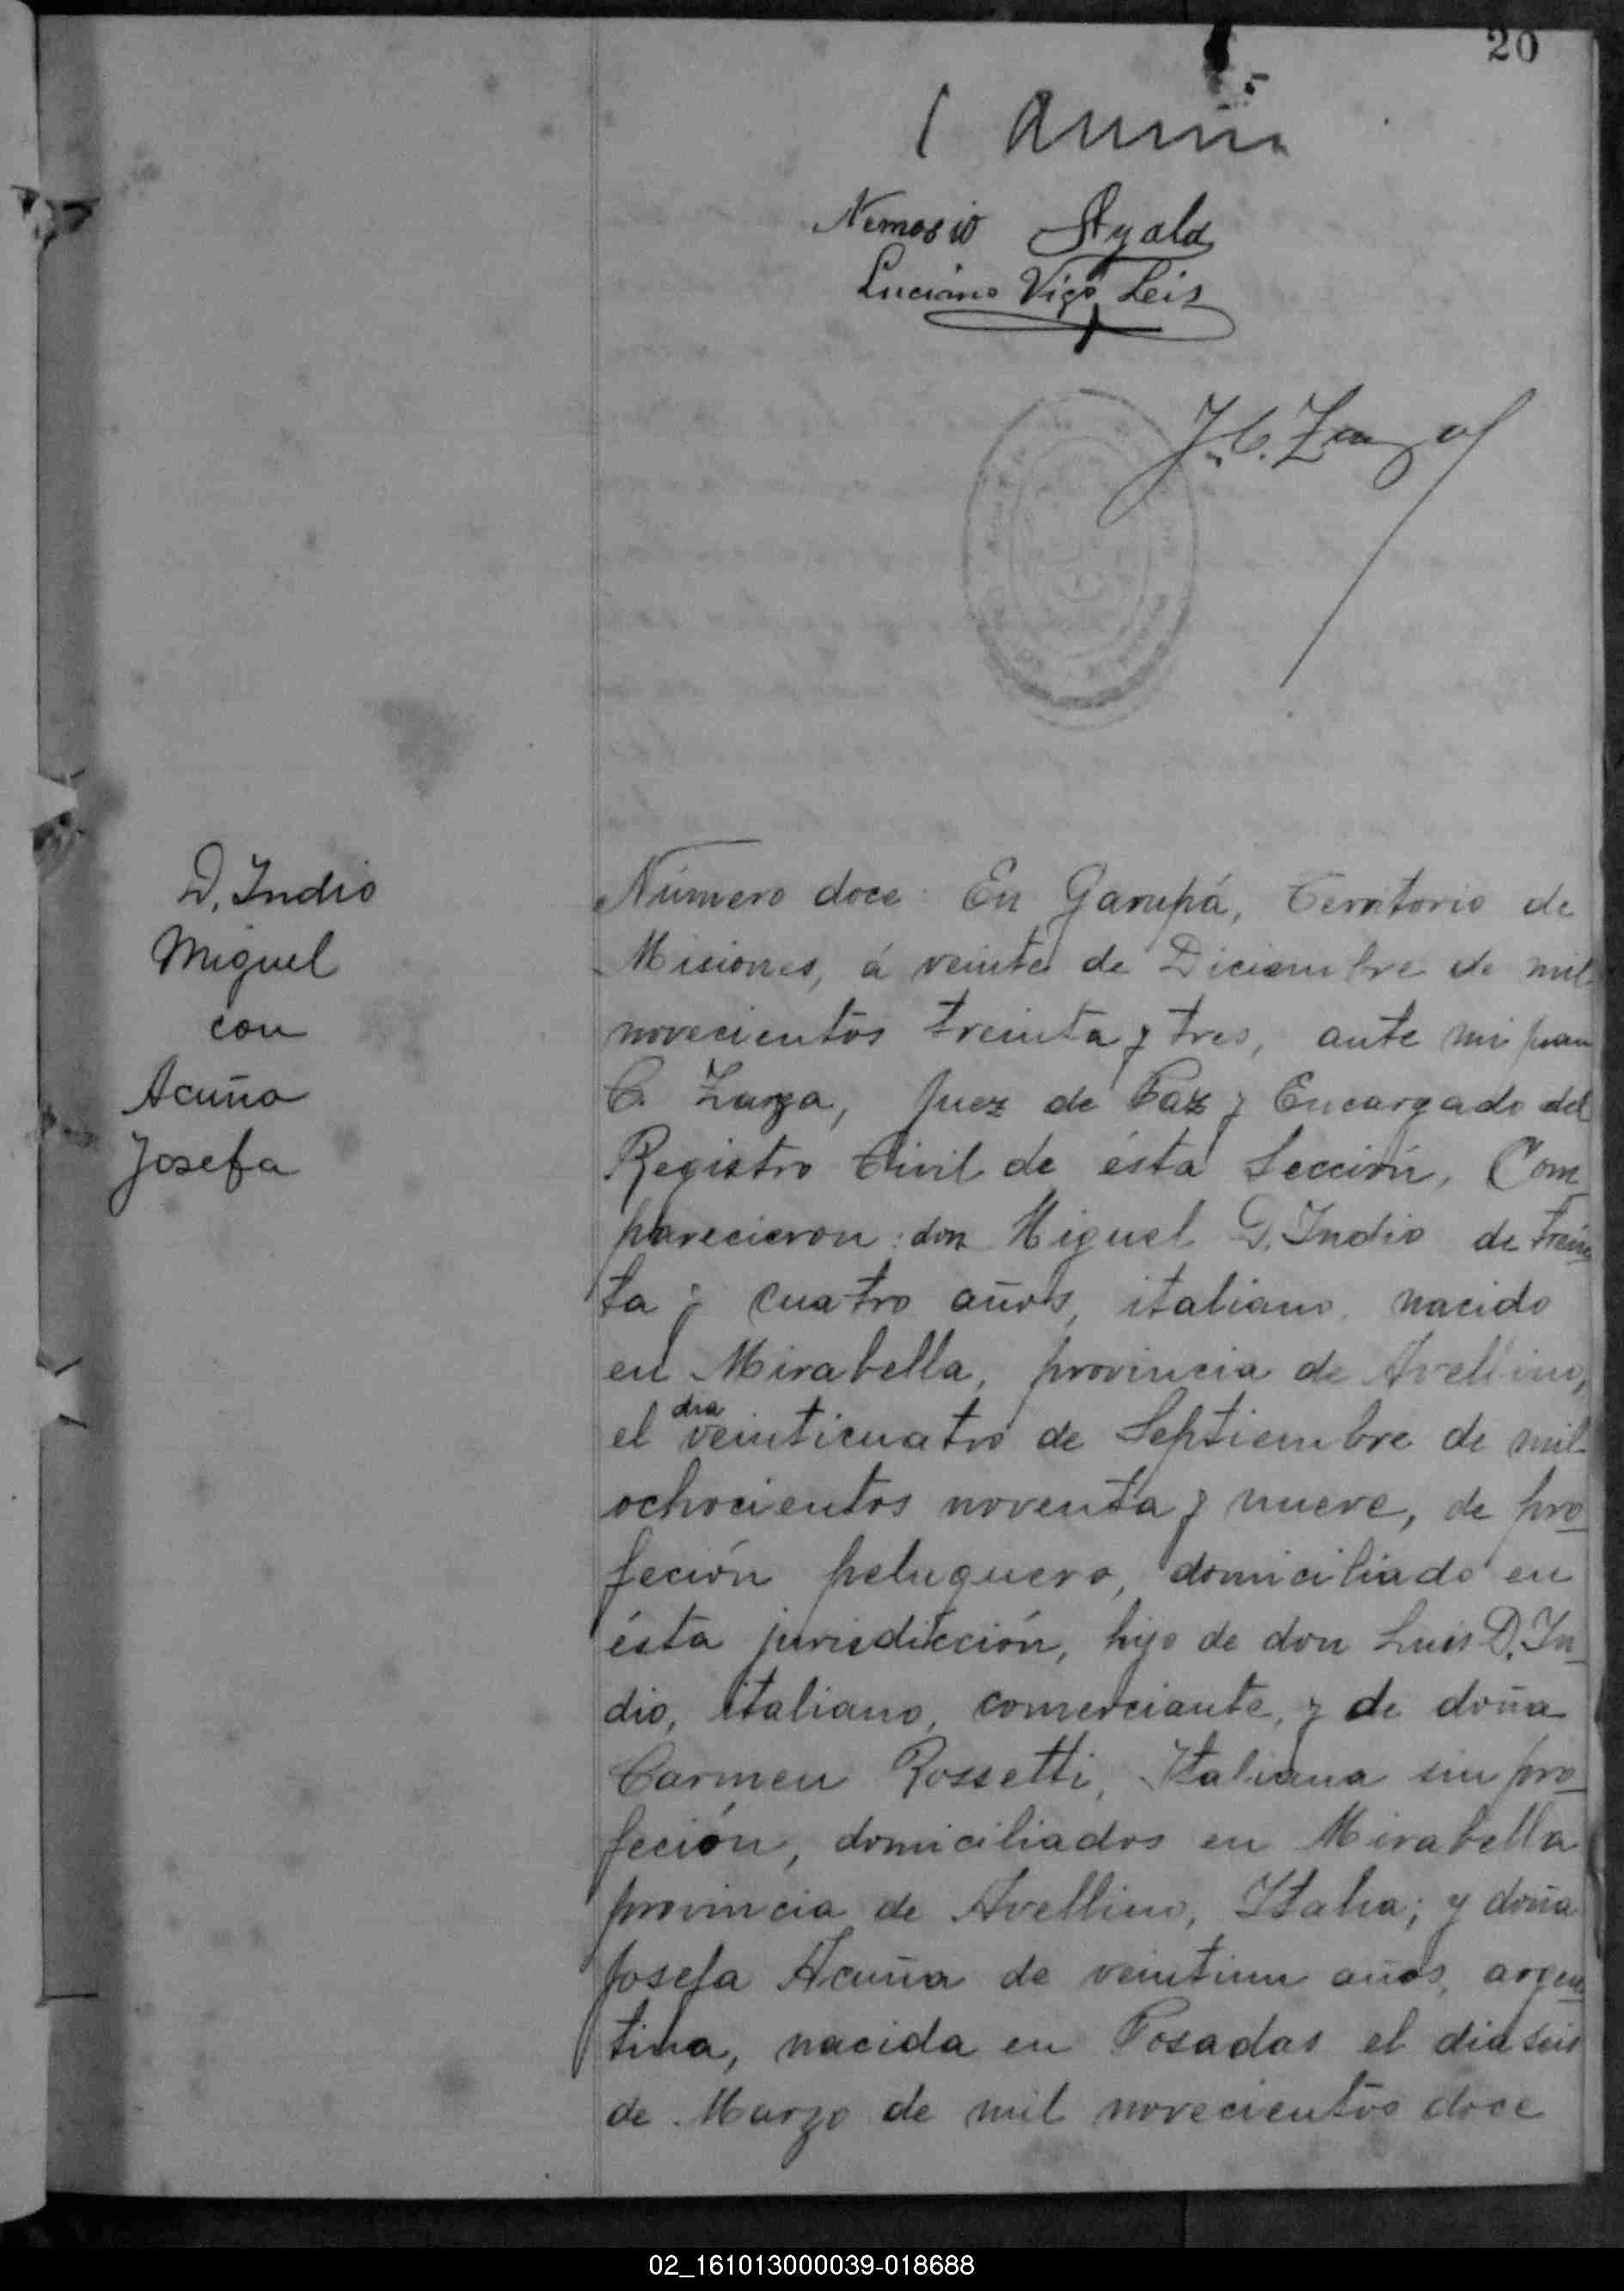 20
Nemosio Ayala
Luciano Vigo Leis
J. C. Zarza
D. Indio
Miguel
con
Acuña
Josefa
Número doce: En Garupá, Territorio de
Misiones, á veinte de Diciembre de mil
novecientos treinta y tres, ante mi Juan
C. Zarza, Juez de Paz y Encargado del
Registro Civil de ésta Sección, Com
parecieron: don Miguel D. Indio de trein
ta y cuatro años, italiano, nacido
en Mirabella, provincia de Avellino,
el dia veinticuatro de Septiembre de mil
ochocientos noventa y nueve, de pro
feción peluquero, domiciliado en
ésta jurisdicción, hijo de don Luis D. In
dio, italiano, comerciante, y de doña
Carmen Rossetti, Italiana sin pro
feción, domiciliados en Mirabella
provincia de Avellino, Italia; y doña
Josefa Acuña de veintiun años, argen
tina, nacida en Posadas el dia seis
de Marzo de mil novecientos doce
02_161013000039-018688